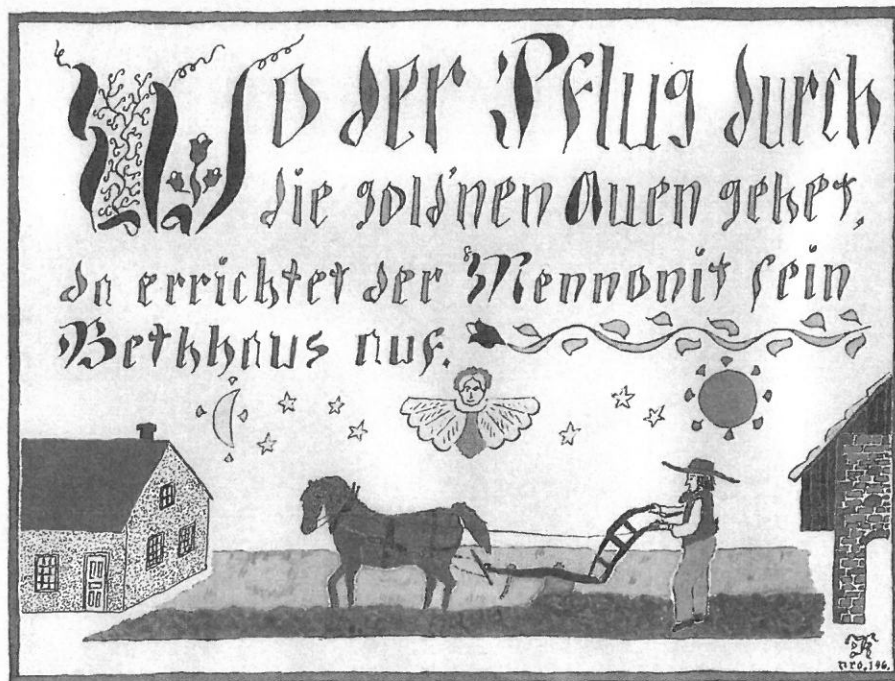 Wo der Pflug durch
die gold'nen Auen gehet,
da errichtet der Mennonit sein
Bethhaus auf.
nro. 146.